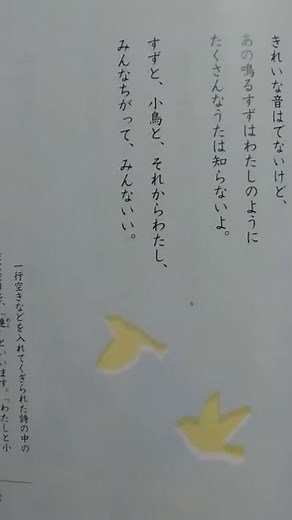 きれいな音はでないけど、
あの鳴るすずはわたしのように
たくさんなうたは知らないよ。
すずと、小鳥と、それからわたし、
みんなちがって、みんないい。
一行空きなどを入れてくぎられた詩の中の
といいます。「わたしと小